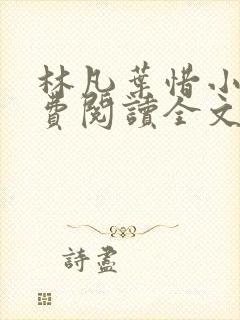 林凡葉惜小
費閱讀全文
詩盡